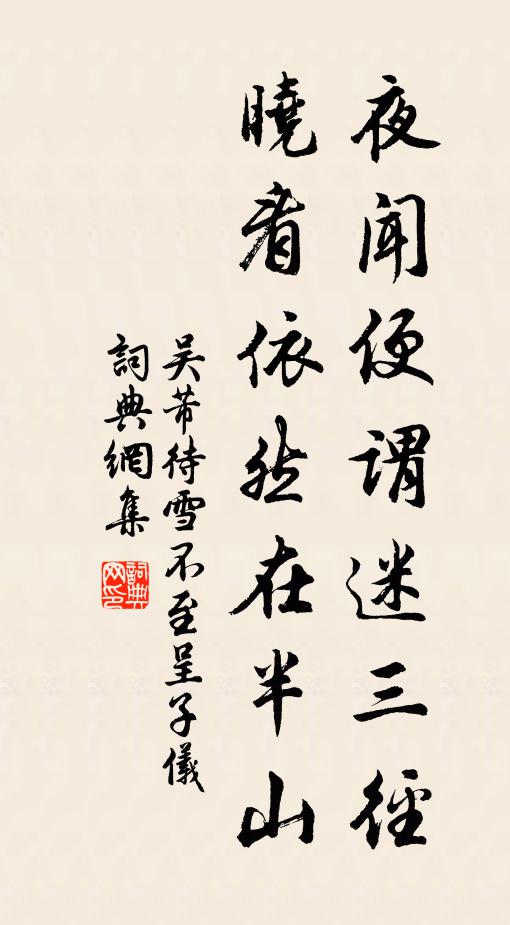 夜聞便謂迷三徑
曉看依然在半山
吴芾待雪不至呈子儀
詞典網集
詞典
网印